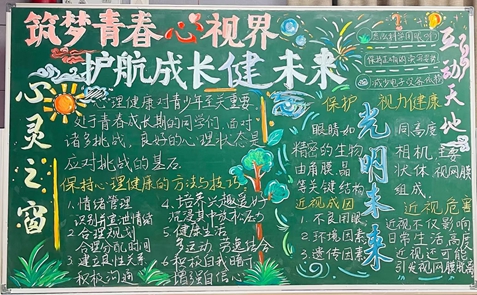 筑梦青春心视界
护航成长健未来
心灵之窗
心理健康对青少年至关重要
处于青春成长期的同学们，面对
诸多挑战，良好的心理状态是
应对挑战的基石
保持心理健康的方法与技巧
1.情绪管理
识别并管理情绪
2.合理规划
合理分配时间
3.建立良性关系
积极沟通
4.培养兴趣爱好
沉浸其中放松压力
5.健康生活
多运动 劳逸结合
6.积极自我暗示
增强自信心
互动天地
保持正确的读写姿势
减少电子设备使用
保护视力健康
光明未来
眼睛如同高度
精密的生物相机，主要
由角膜晶状体，视网膜
等关键结构组成，
近视成因
1.不良用眼
2.环境因素
3.遗传因素
近视危害
近视不仅影响
日常生活，高度
近视还可能
引发视网膜脱离